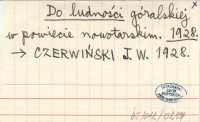 Do ludności góralskiej x
w powiecie nowotarskim. 1928.
→ CZERWIŃSKI J. W. 1928.